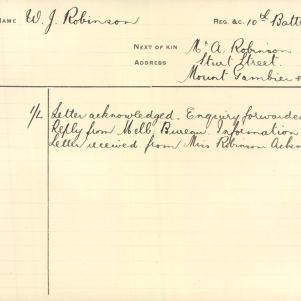 NAME W. J. Robinson REG. &C. 10th Batt
NEXT OF KIN Mr A. Robinson
ADDRESS Sturt Street.
Mount Gambier
1/L Letter acknowledged. Enquiry forwarded
Reply from Melb. Bureau. Information
Letter received from Mrs Robinson Ackn